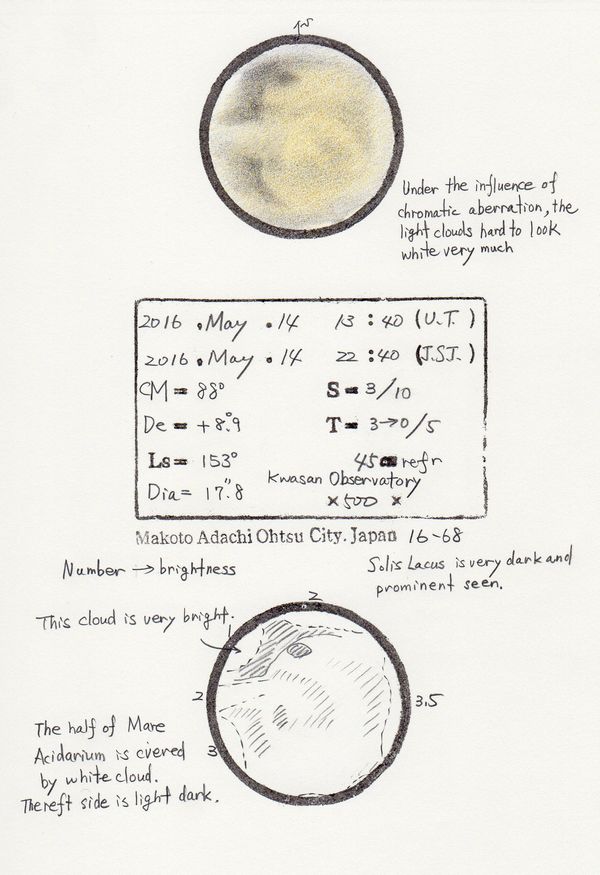 Under the influence of
chromatic aberration, the
light clouds hard to look
white very much
2016 . May . 14 13 : 40 (U.T. )
2016 . May . 14 22 : 40 (J.S.T. )
CM = 88°
S = 3/10
De = +8.°9
T = 3→0/5
Ls = 153°
45 cm refr
Kwasan Observatory
Dia = 17."8
×500 ×
Makoto Adachi Ohtsu City. Japan 16-68
Number → brightness
Solis Lacus is very dark and
prominent seen.
2
This cloud is very bright.
2
3.5
3
The half of Mare
Acidarium is covered
by white cloud.
The left side is light dark.